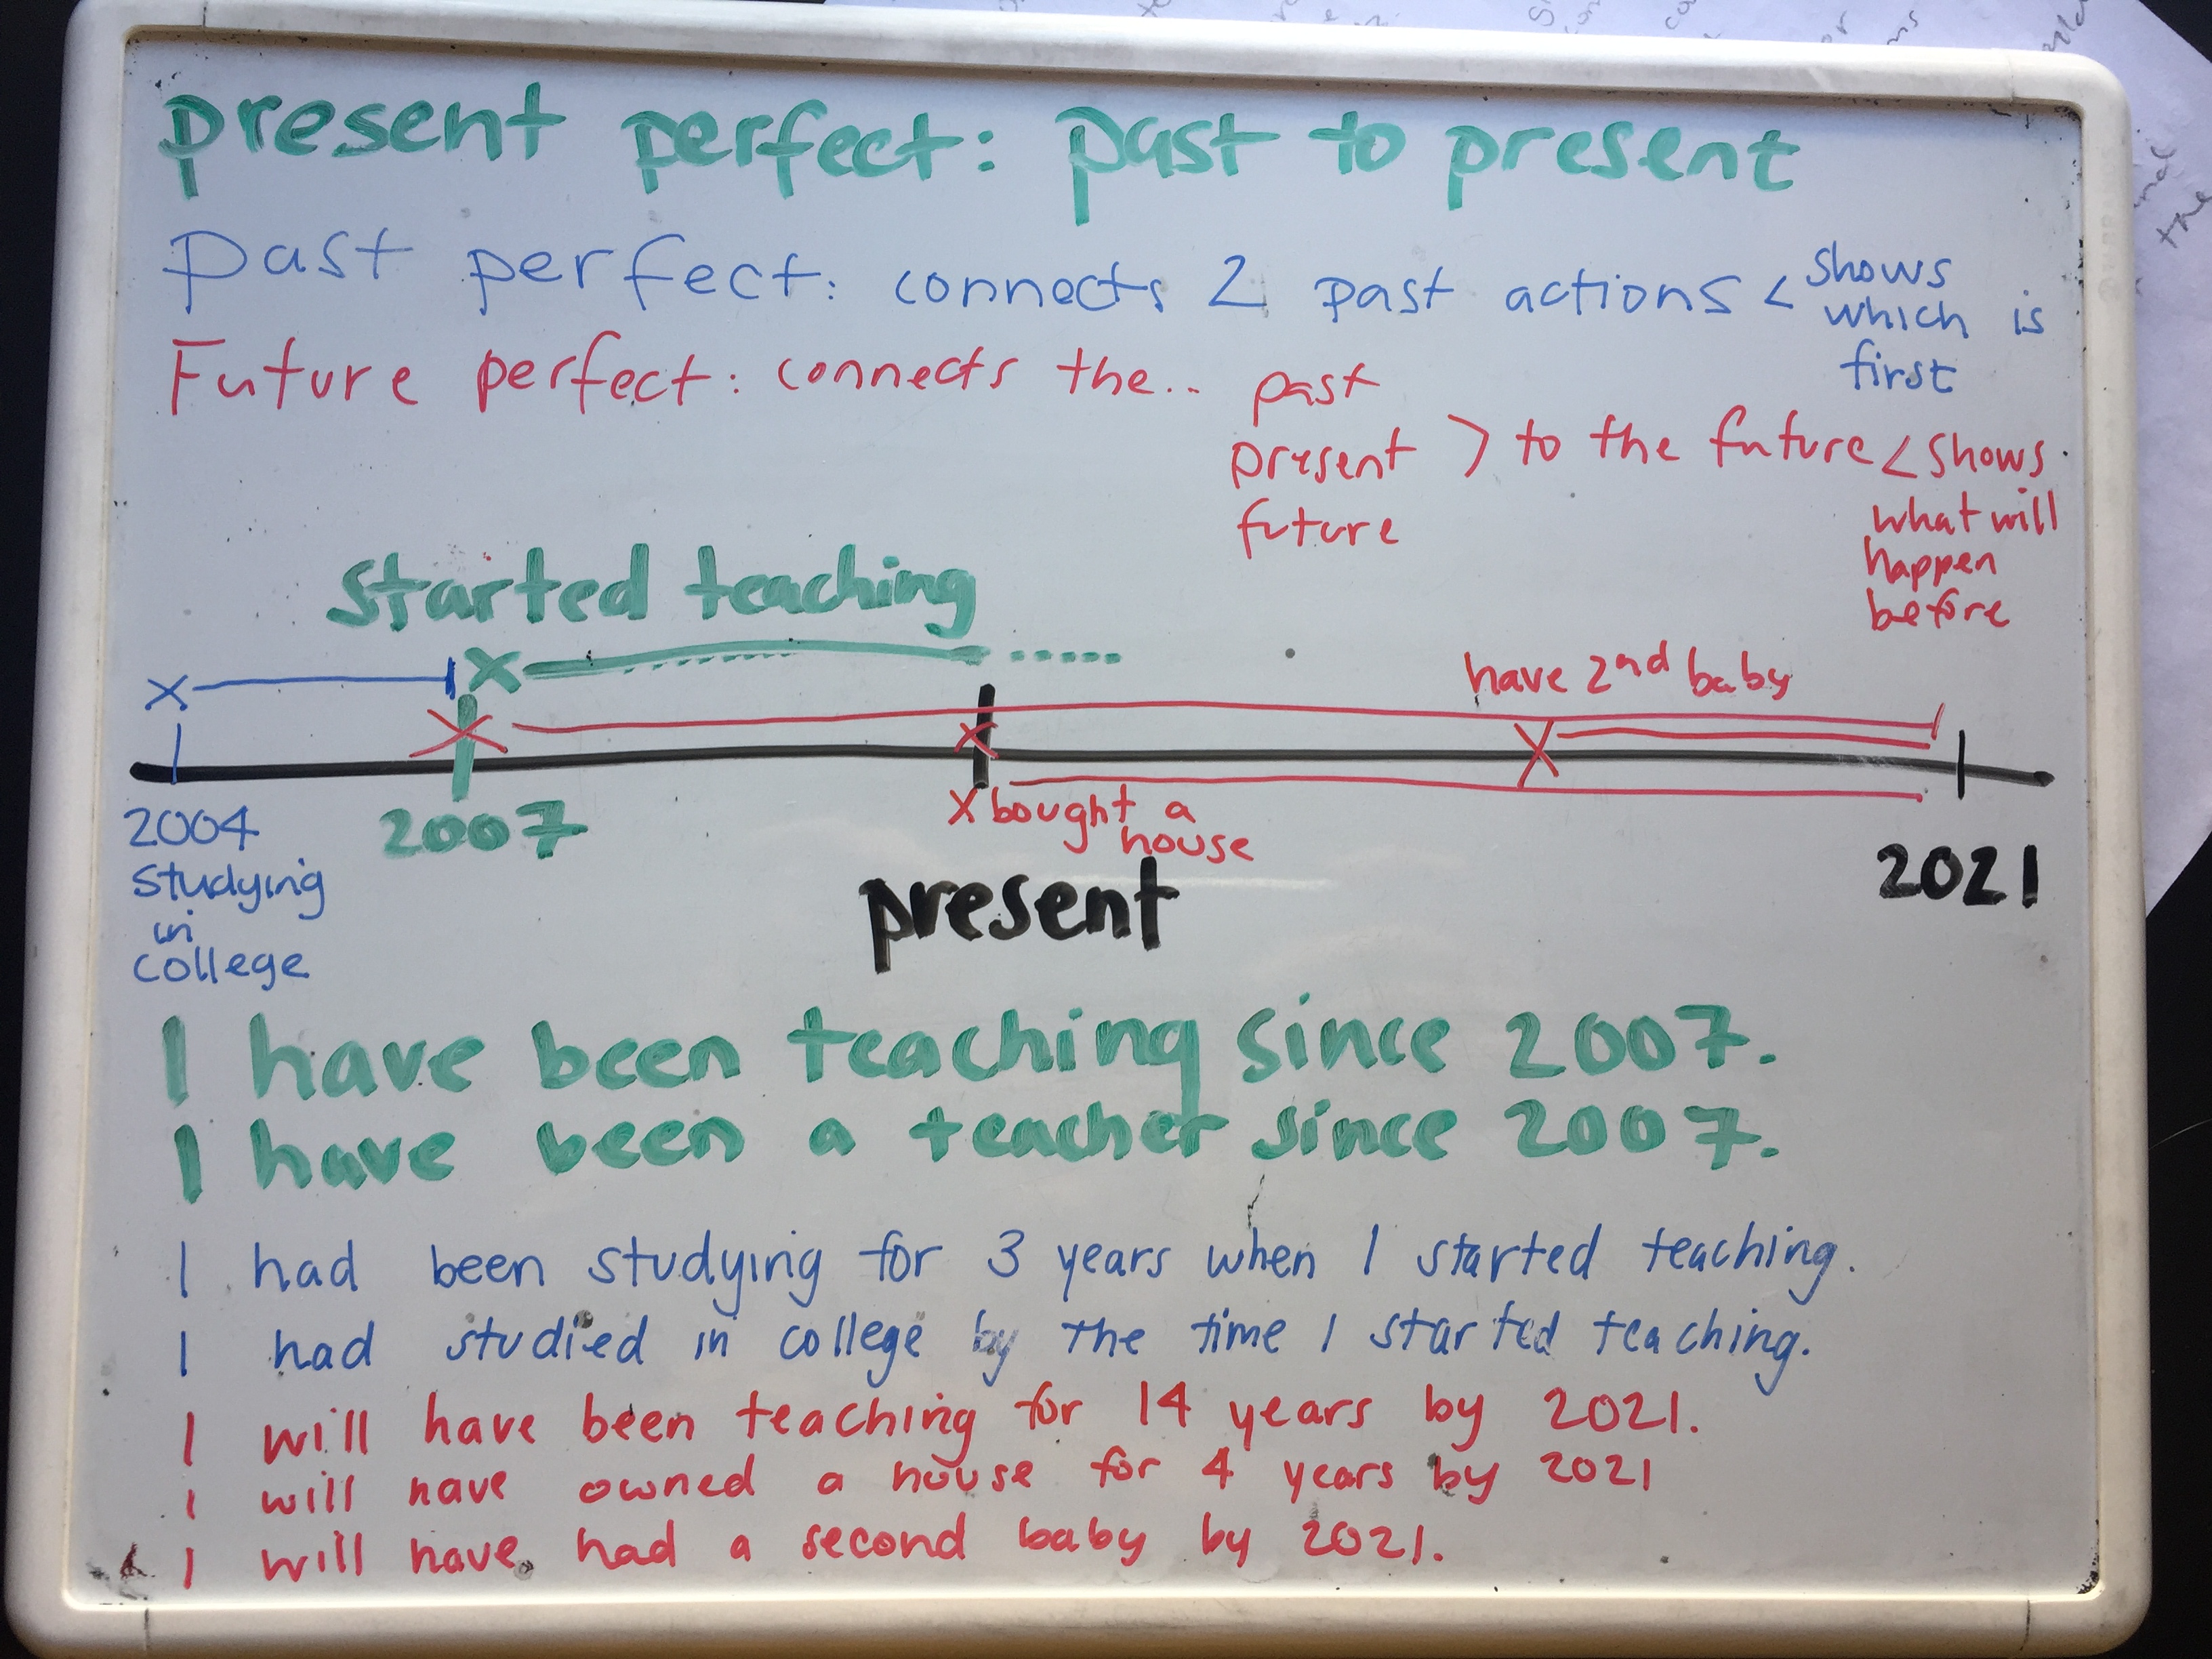 present perfect: past to present
Past perfect: connects 2 past actions < shows
which is
first
Future perfect: connects the.. past
present > to the future < shows
future
what will
happen
before
started teaching
have 2nd baby
2004
studying
in
college
2007
x bought a
house
present
2021
I have been teaching since 2007.
I have been a teacher since 2007.
I had been studying for 3 years when I started teaching.
I had studied in college by the time I started teaching.
I will have been teaching for 14 years by 2021.
I will have owned a house for 4 years by 2021
I will have had a second baby by 2021.